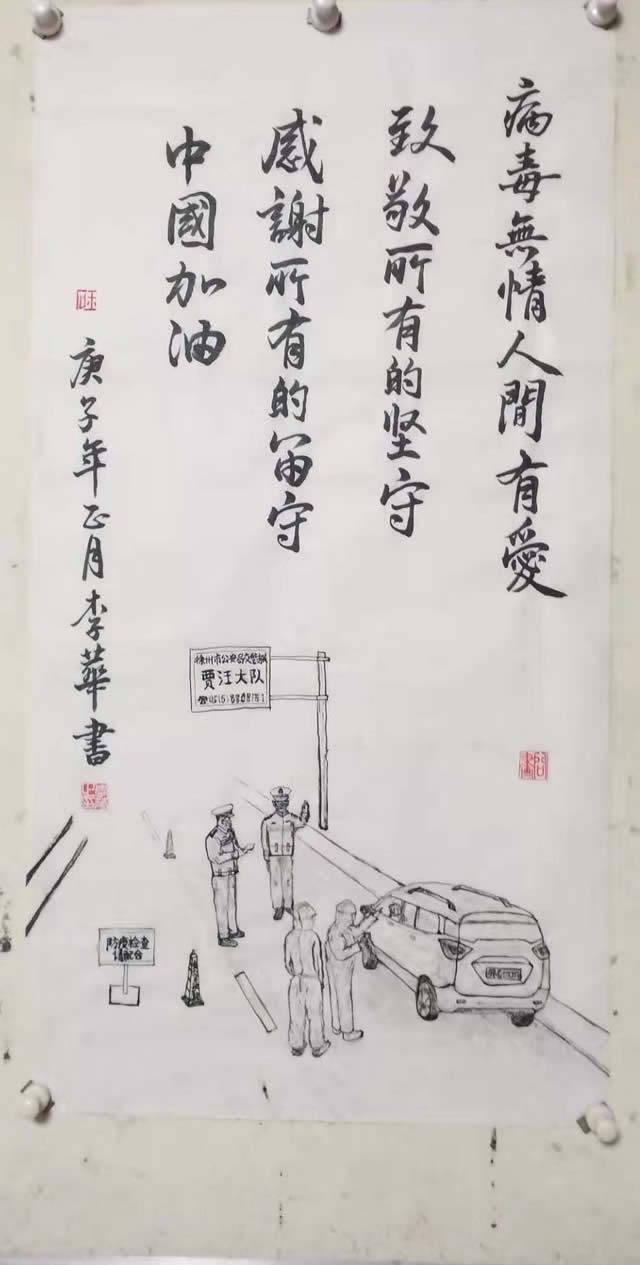 病毒無情人間有愛
致敬所有的坚守
感謝所有的留守
中國加油
庚子年正月李華書
徐州市公安局交警支队
贾汪大队
防疫检查
请配合